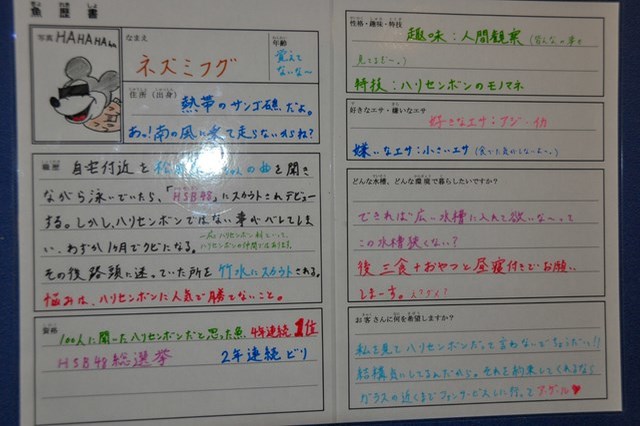 魚歴書
写真
HAHAHA
なまえ
ネズミフグ
年齢
覚えて
ないな〜
住所(出身)
熱帯のサンゴ礁だよ。
あっ!南の風に乗て走らないからね?
職歴
自宅付近を松田 ちゃんの曲を聞き
ながら泳いでいたら、「HSB48」にスカウトされデビュー
する。しかし、ハリセンボンではない事がバレてしま
い、わずか1ヶ月でクビになる。
一応、ハリセンボン科といって、
ハリセンボンの仲間ではあります
その後路頭に迷っていた所を竹水にスカウトされる。
悩みは、ハリセンボンに人気で勝てないこと。
資格
100人に聞いたハリセンボンだと思った魚 4年連続1位
HSB48総選挙 2年連続ビリ
性格・趣味・特技
趣味:人間観察(みんなの事を
見てるぞ〜。)
特技:ハリセンボンのモノマネ
好きなエサ・嫌いなエサ
好きなエサ:アジ・イカ
嫌いなエサ:小さいエサ(食べた気がしな〜い。)
どんな水槽、どんな環境で暮らしたいですか?
できれば広〜い水槽に入れて欲いな〜って
この水槽狭くない?
後 三食+おやつと昼寝付きでお願い
しまーす。
お客さんに何を希望しますか?
私を見てハリセンボンだって言わないでちょうだい!!
結構気にしてるんだから。それを約束してくれるなら
ガラスの近くまでファンサービスしに行って